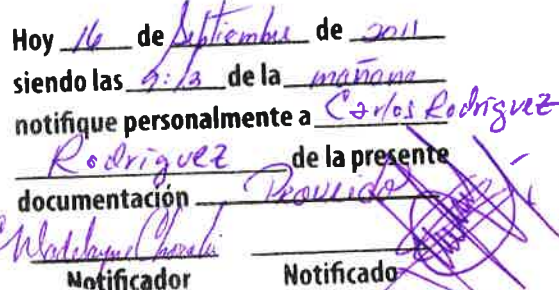 Hoy 16 de Septiembre de 2011
siendo las 9:13 de la mañana
notifique personalmente a Carlos Rodriguez
Rodriguez de la presente
documentación Proveido
Notificador Notificado